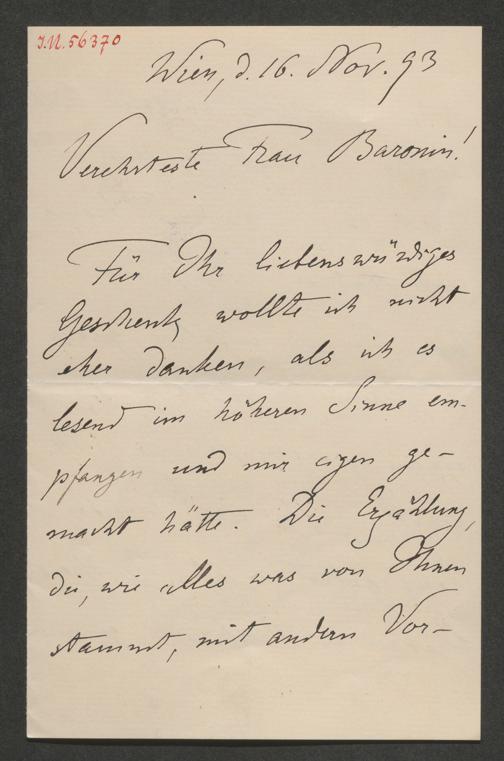 J.N. 56370
Wien, d. 16. Nov. 93
Verehrteste Frau Baronin!
Für Ihr liebenswürdiges
Geschenk wollte ich nicht
eher danken, als ich es
lesend im höheren Sinne em-
pfangen und mir eigen ge-
macht hätte. Die Erzählung,
die, wie alles was von Ihnen
stammt, mit andern Vor-